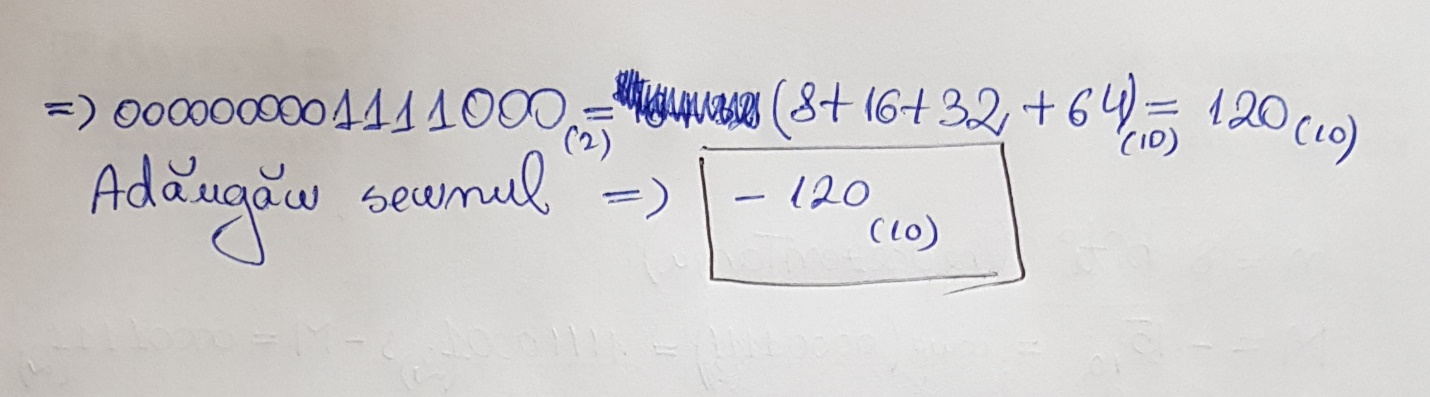 => 0000000001111000(2) = (8+16+32+64)(10) = 120(10)
Adăugăm semnul => - 120(10)